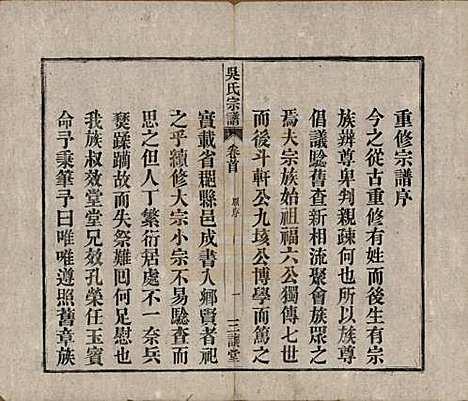 重修宗譜序
今之從古重修有姓而後生有宗
族辨尊卑判親疎何也所以族尊
倡議騐舊查新相流聚會族眾之
焉夫宗族始祖福六公獨傳七世
而後斗軒公九垓公博學而篤之
吳氏宗譜
卷首
原序
一
三讓堂
實載省題縣邑成書入鄉賢者祀
之乎續修大宗小宗不易騐查而
思之但人丁繁衍居處不一奈兵
燹蹂躪故而失祭難囘何足慰也
我族叔效堂堂兄效孔榮任玉實
命予秉筆予曰唯唯遵照舊章族